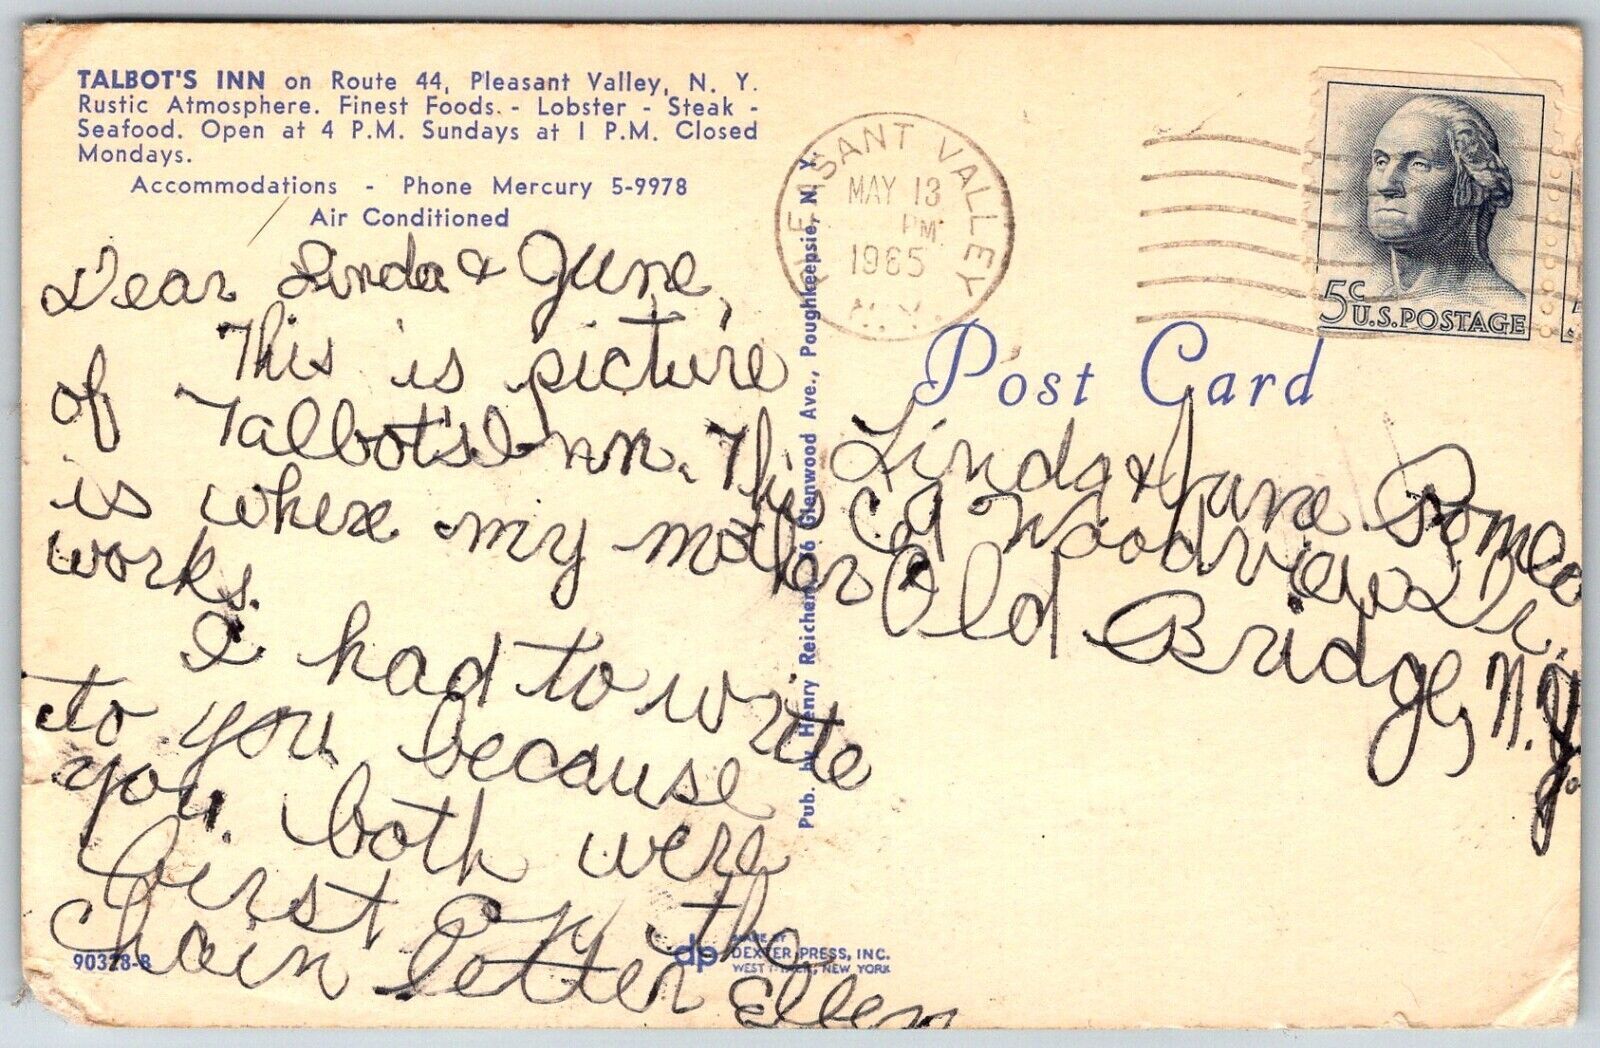 TALBOT'S INN on Route 44, Pleasant Valley, N. Y.
Rustic Atmosphere. Finest Foods. - Lobster - Steak -
Seafood. Open at 4 P.M. Sundays at 1 P.M. Closed
Mondays.
Accommodations - Phone Mercury 5-9978
Air Conditioned
Dear Linda & June,
This is picture
of Talbot's Inn. This
is where my mother
works.
I had to write
to you because
you both were
first on the
chain letter
Ellen
90328-B
Pub. by Henry Reichert, Glenwood Ave., Poughkeepsie, N. Y.
dp MADE BY
DEXTER PRESS, INC.
WEST NYACK, NEW YORK
PLEASANT VALLEY
MAY 13
PM
1965
N.Y.
5c
U.S. POSTAGE
Post Card
Linda & June Romeo
Woodview Dr.
Old Bridge, N.J.